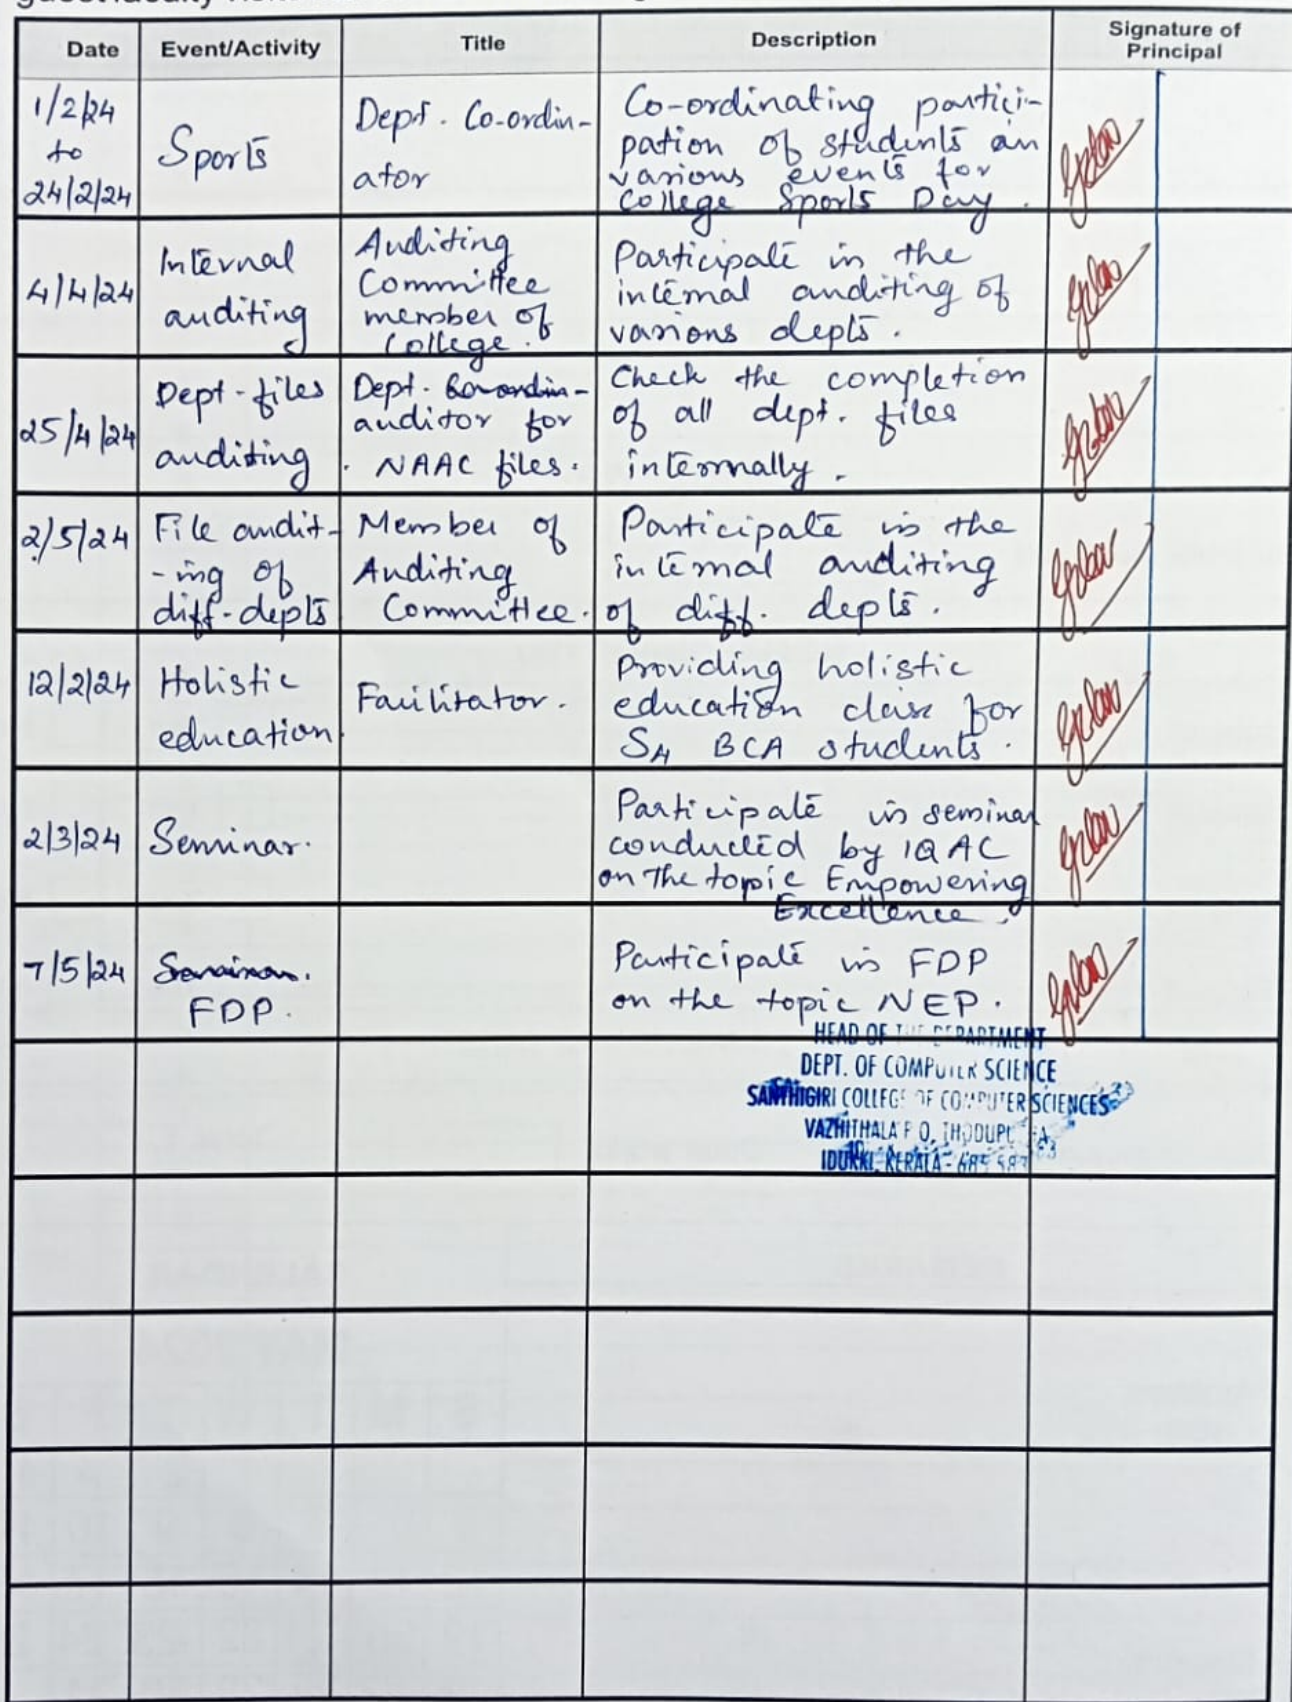 guest faculty
Date Event/Activity Title Description Signature of Principal
1/2/24
to
24/2/24
Sports
Dept. Co-ordin-
ator
Co-ordinating partici-
pation of students an
various events for
College Sports Day.
4/4/24
Internal
auditing
Auditing
Committee
member of
College.
Participate in the
internal auditing of
various depts.
25/4/24
Dept-files
auditing.
Dept. Co-ordin-
auditor for
NAAC files.
Check the completion
of all dept. files
internally.
2/5/24
File audit-
-ing of
diff-depts
Member of
Auditing
Committee.
Participate in the
internal auditing
of diff. depts.
12/2/24
Holistic
education
Facilitator.
Providing holistic
education class for
S4 BCA students.
2/3/24
Seminar.
Participate in seminar
conducted by IQAC
on the topic Empowering
Excellence.
7/5/24
Seminar.
FDP.
Participate in FDP
on the topic NEP.
HEAD OF THE DEPARTMENT
DEPT. OF COMPUTER SCIENCE
SANTHIGIRI COLLEGE OF COMPUTER SCIENCES
VAZHITHALA P O, THODUPUZHA
IDUKKI, KERALA - 685 583